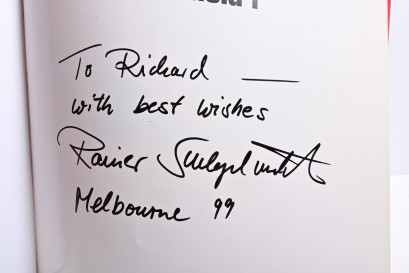 To Richard ——
with best wishes
Rainer Schlegelmilch
Melbourne 99